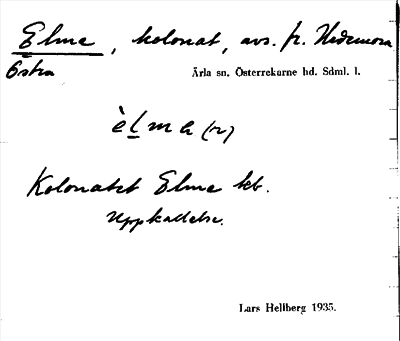 Elma, kolonat, avs. fr. Hedemora
Östra
Ärla sn. Österrekarne hd. Sdml. l.
èlma (n)
Kolonatet Elma kbr.
Uppkallelse.
Lars Hellberg 1935.